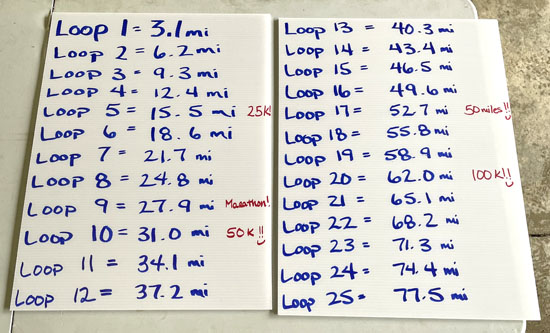 Loop 1 = 3.1 mi
Loop 2 = 6.2 mi
Loop 3 = 9.3 mi
Loop 4 = 12.4 mi
Loop 5 = 15.5 mi 25K!
Loop 6 = 18.6 mi
Loop 7 = 21.7 mi
Loop 8 = 24.8 mi
Loop 9 = 27.9 mi Marathon!
Loop 10 = 31.0 mi 50K!!
Loop 11 = 34.1 mi
Loop 12 = 37.2 mi
Loop 13 = 40.3 mi
Loop 14 = 43.4 mi
Loop 15 = 46.5 mi
Loop 16 = 49.6 mi
Loop 17 = 52.7 mi 50 miles!!
Loop 18 = 55.8 mi
Loop 19 = 58.9 mi
Loop 20 = 62.0 mi 100K!!
Loop 21 = 65.1 mi
Loop 22 = 68.2 mi
Loop 23 = 71.3 mi
Loop 24 = 74.4 mi
Loop 25 = 77.5 mi